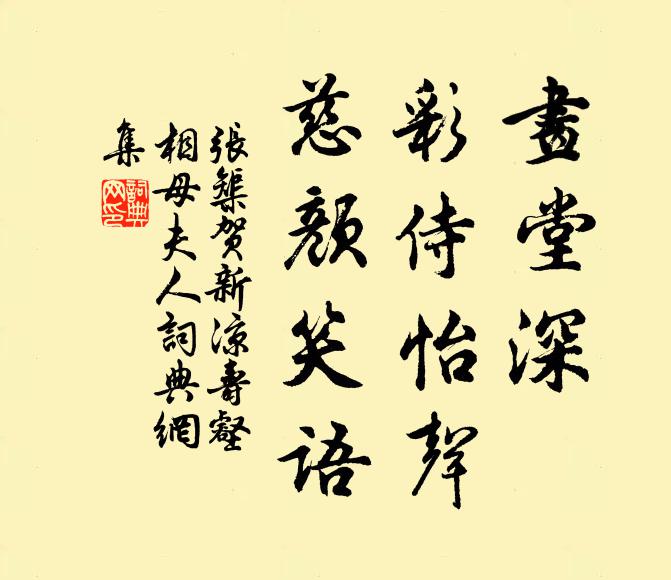 畫堂深
彩侍怡聲
慈顏笑語
張榘賀新涼壽壑
相母夫人詞典網
集
詞典
网印